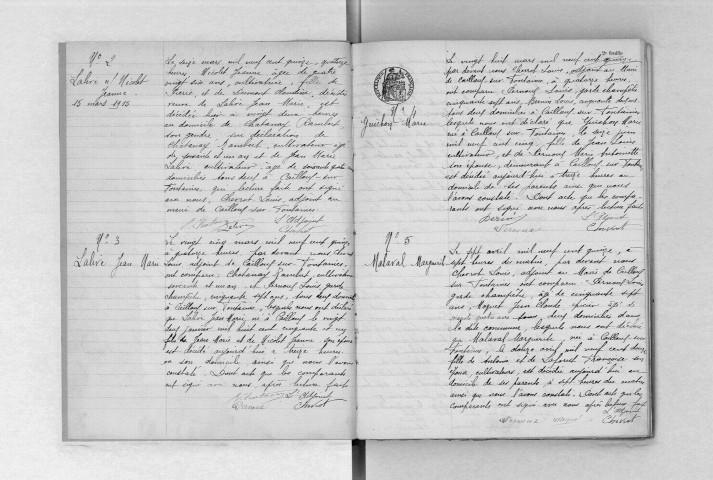 N° 2
Lalive n/ Nicolet
Jeanne
15 mars 1915
Le seize mars mil neuf cent quinze, quatorze
heures Nicolet Jeanne, âgée de quatre
vingt six ans, cultivatrice, fille de
Pierre, et de Claudine, décédée
veuve de Lalive Jean Marie, est
décédée hier à vingt deux heures
au domicile de Chatanay Rambert
son gendre sur déclarations de
Chatanay Rambert, cultivateur âgé
de soixante et un ans et de Jean Marie
Lalive cultivateur âgé de soixante quatre ans
domiciliés tous deux à Cailloux-sur-
Fontaines, qui lecture faite ont signé
avec nous, Chevrot Louis, adjoint au
maire de Cailloux sur Fontaines.
L'Adjoint
Lalive Chevrot
N° 3
Lalive Jean Marie
Le vingt cinq mars mil neuf cent quinze,
à quatorze heures, par devant nous Chevrot
Louis, adjoint de Cailloux sur Fontaines,
ont comparu Chatanay Rambert, cultivateur
soixante et un ans, et Louis garde
champêtre, cinquante sept ans, tous deux domiciliés
à Cailloux sur Fontaines, lesquels nous ont déclaré
que Lalive Jean Marie, né à Cailloux le vingt
deux janvier mil huit cent cinquante et un,
fils de Jean Marie et de Nicolet Jeanne, son épouse
est décédé aujourd'hui à treize heures
en son domicile ainsi que nous l'avons
constaté. Dont acte que les comparants
ont signé avec nous, après lecture faite
L'Adjoint
Chevrot
2e feuille
N° 4
Guichon Marie
Le vingt huit mars mil neuf cent quinze
par devant nous Chevrot Louis, adjoint au Maire
de Cailloux sur Fontaines, à quatorze heures,
ont comparu Louis, garde champêtre
cinquante sept ans, Louis, cinquante
tous deux domiciliés à Cailloux sur Fontaines,
lesquels nous ont déclaré que Guichon Marie
née à Cailloux sur Fontaines, le seize juin
mil neuf cent cinq, fille de Jean Louis
cultivateur, et de Marie Antoinette
son épouse, demeurant à Cailloux sur Fontaines
est décédée aujourd'hui à treize heures au
domicile de ses parents ainsi que nous
l'avons constaté. Dont acte que les compa-
rants ont signé avec nous après lecture faite
L'Adjoint
Chevrot
N° 5
Malaval Marguerite
Le sept avril mil neuf cent quinze, à
sept heures du matin, par devant nous
Chevrot Louis, adjoint au Maire de Cailloux
sur Fontaines ont comparu Louis
garde champêtre, âgé de cinquante sept
ans, Moguet Jean Claude épicier âgé de
ans, deux domiciliés dans
la dite commune, lesquels nous ont déclaré
que Malaval Marguerite, née à Cailloux sur
Fontaines, le douze avril mil neuf cent
fille de Antoine et de Françoise
cultivateurs, est décédée aujourd'hui au
domicile de ses parents, à sept heures du matin
ainsi que nous l'avons constaté. Dont acte que les
comparants ont signé avec nous après lecture faite
L'Adjoint
Chevrot